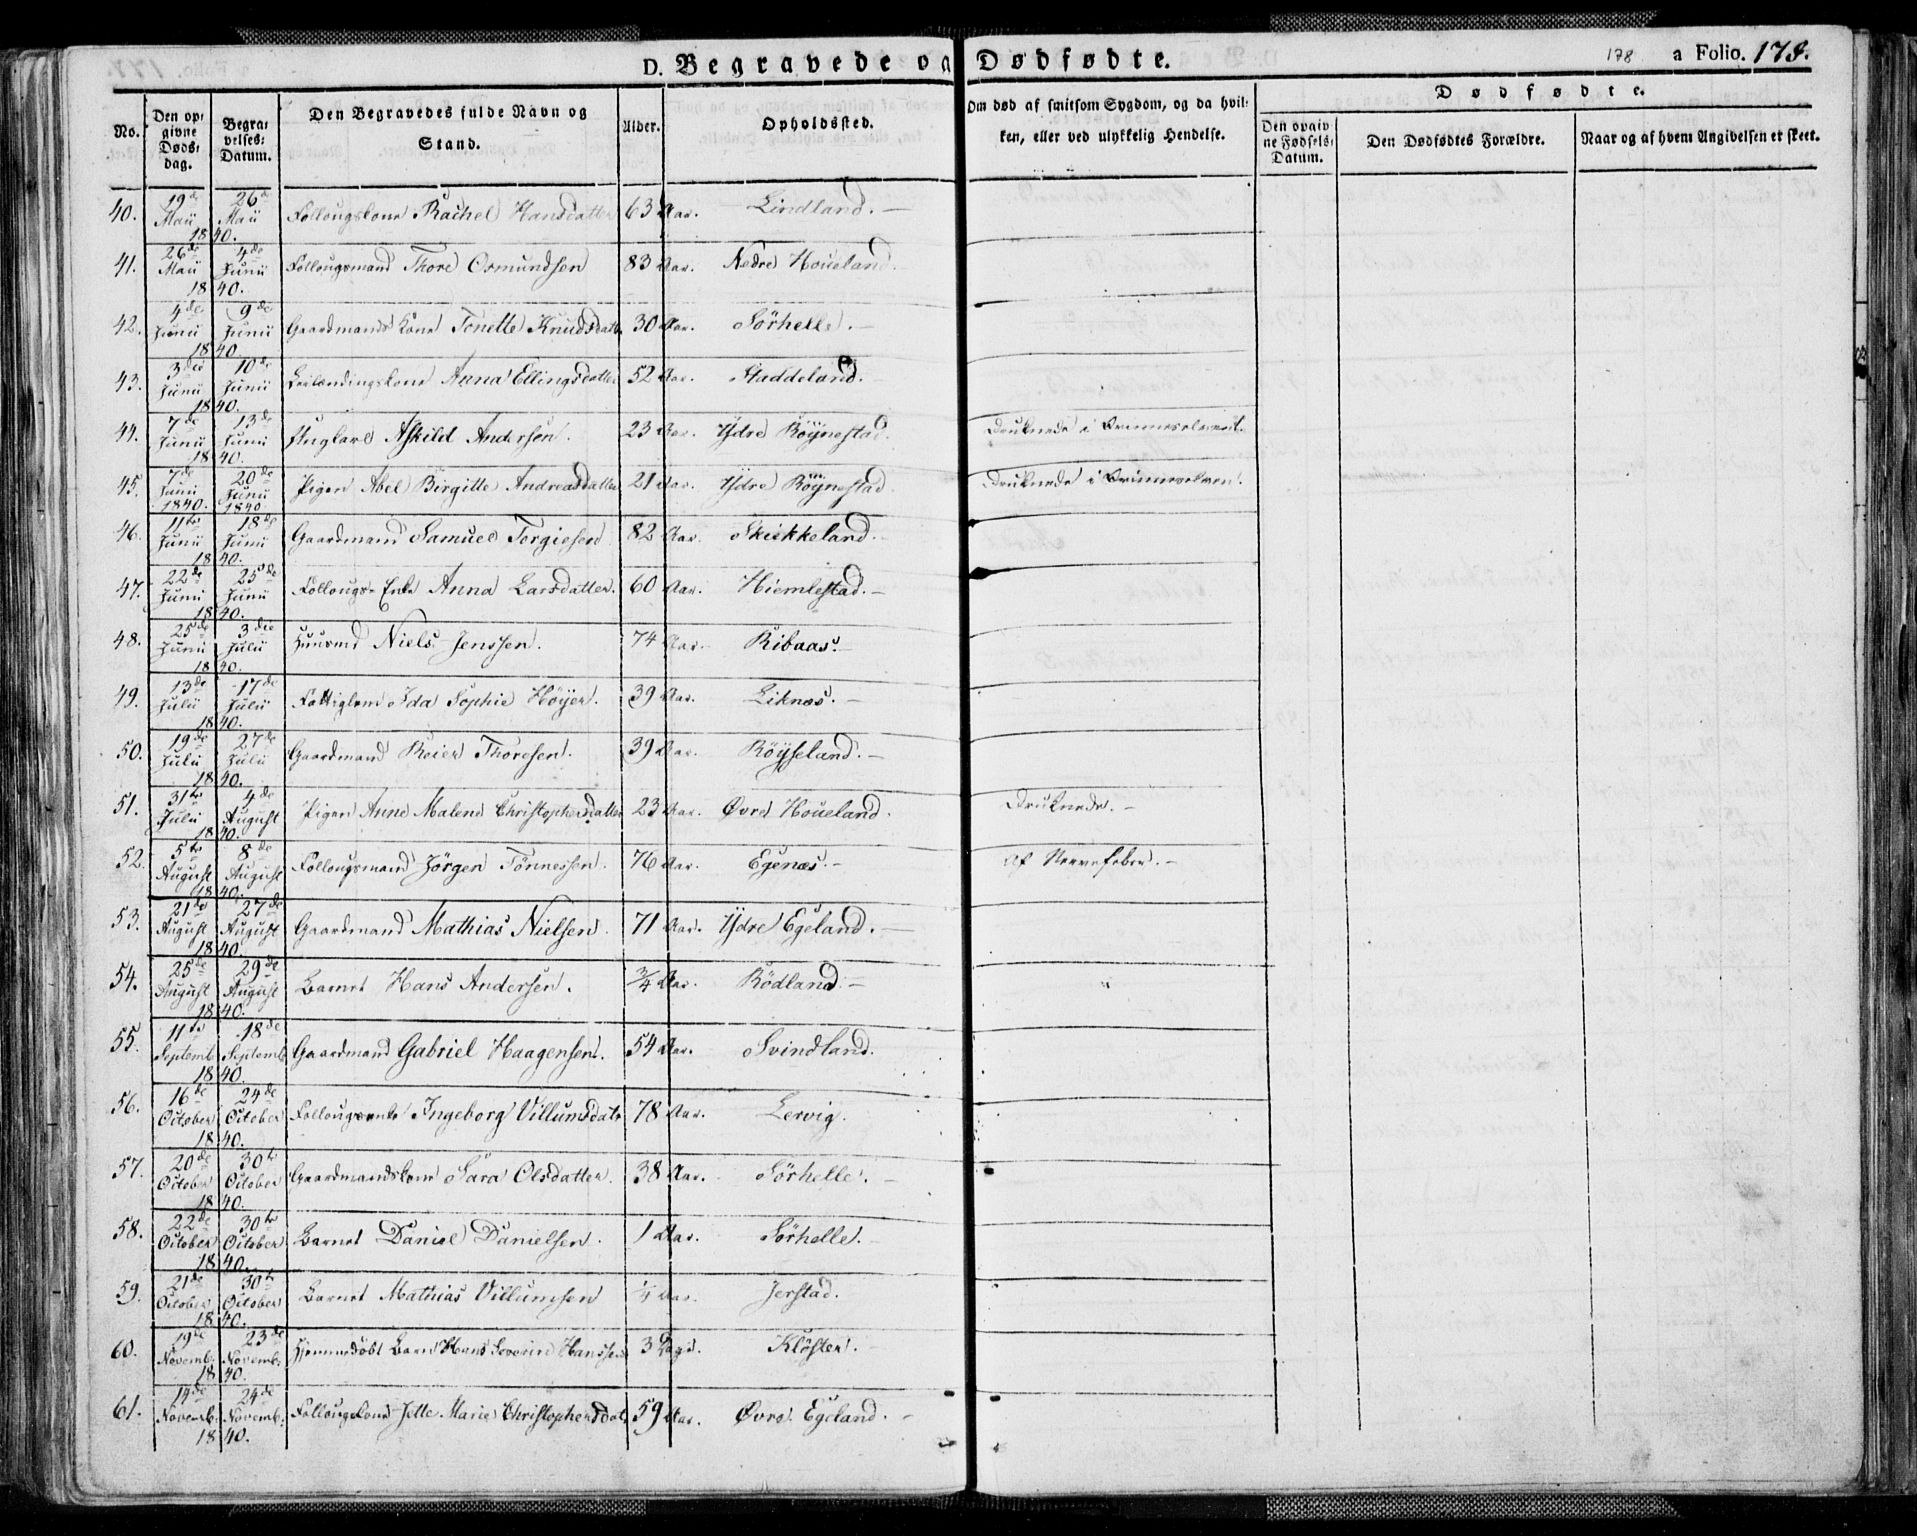 D. Begravede og Dødfødte.
178 a Folio. 178.
No. Den opgivne Døds-dag. Begravelses-Datum. Den Begravedes fulde Navn og Stand. Alder. Opholdssted. Om død af smitsom Sygdom, og da hvilken, eller ved ulykkelig Hendelse.
Dødfødte.
Den opgivne Fødsels-Datum. Den Dødfødtes Forældre. Naar og af hvem Angivelsen er skeet.
40. 19de Maii 26de Maii 1840. Follougskone Rachel Hansdatter 63 Aar. Lindland.
41. 26de Maii 4de Junii 1840. Follougsmand Thore Osmundsen 83 Aar. Nedre Houeland.
42. 4de Junii 9de Junii 1840. Gaardmands Kone Tonette Knudsdattr 30 Aar. Sörhelle.
43. 3die Junii 10de Junii 1840. Leilændingskone Anna Ellingsdatter 52 Aar. Staddeland.
44. 7de Junii 13de Junii 1840. Ungkarl Askild Andersen. 23 Aar. Ydre Röÿnestad. Druknede i
45. 7de Junii 1840. 20de Junii 1840 Pigen Abel Birgitte Andreasdatter 21 Aar. Ydre Röÿnestad Druknede i
46. 11te Junii 18de Junii 1840. Gaardmand Samuel Torgiesen 82 Aar. Skiekkeland.
47. 22de Junii 25de Junii 1840. Follougs-Enke Anna Larsdatter. 60 Aar. Hiemlestad.
48. 25de Junii 3die Julii 1840. Huusmd Niels Jenssen. 74 Aar. Ribaas.
49. 13de Julii 17de Julii 1840. Fattiglem Ida Sophie Höÿer. 39 Aar. Liknæs.
50. 19de Julii 27de Julii 1840. Gaardmand Reier Thoresen. 39 Aar. Röÿseland.
51. 31te Julii 4de August 1840. Pigen Anne Malene Christophersdatter 23 Aar. Øvre Houeland. Druknede.
52. 5te August 8de August 1840. Follougsmand Jörgen Tönnessen. 76 Aar. Egenæs. Af Nervefeber.
53. 21de August 27de August 1840. Gaardmand Mathias Nielsen. 71 Aar. Ydre Egeland.
54. 25de August 29de August 1840. Barnet Hans Andersen. 3/4 Aar. Rödland.
55. 11te Septemb. 18de Septemb. 1840. Gaardmand Gabriel Haagensen. 54 Aar. Svindland.
56. 16de October 24de October 1840. Follougsenke Ingeborg Villumsdatr 78 Aar. Lervig.
57. 20de October 30te October 1840. Gaardmandskone Sara Olsdatter. 38 Aar. Sörhelle.
58. 22de October 30te October 1840. Barnet Daniel Danielsen. 1 Aar. Sörhelle.
59. 21de October 30te October 1840. Barnet Mathias Villumsen 1/4 Aar. Jerstad.
60. 19de Novemb. 23de Novemb. 1840. Hjemmedöbt Barn Hans Severin Hanssen 3 Dage. Klöster.
61. 14de Novemb. 24de Novemb. 1840. Follougskone Jette Marie Christophersdat. 59 Aar. Øvre Egeland.